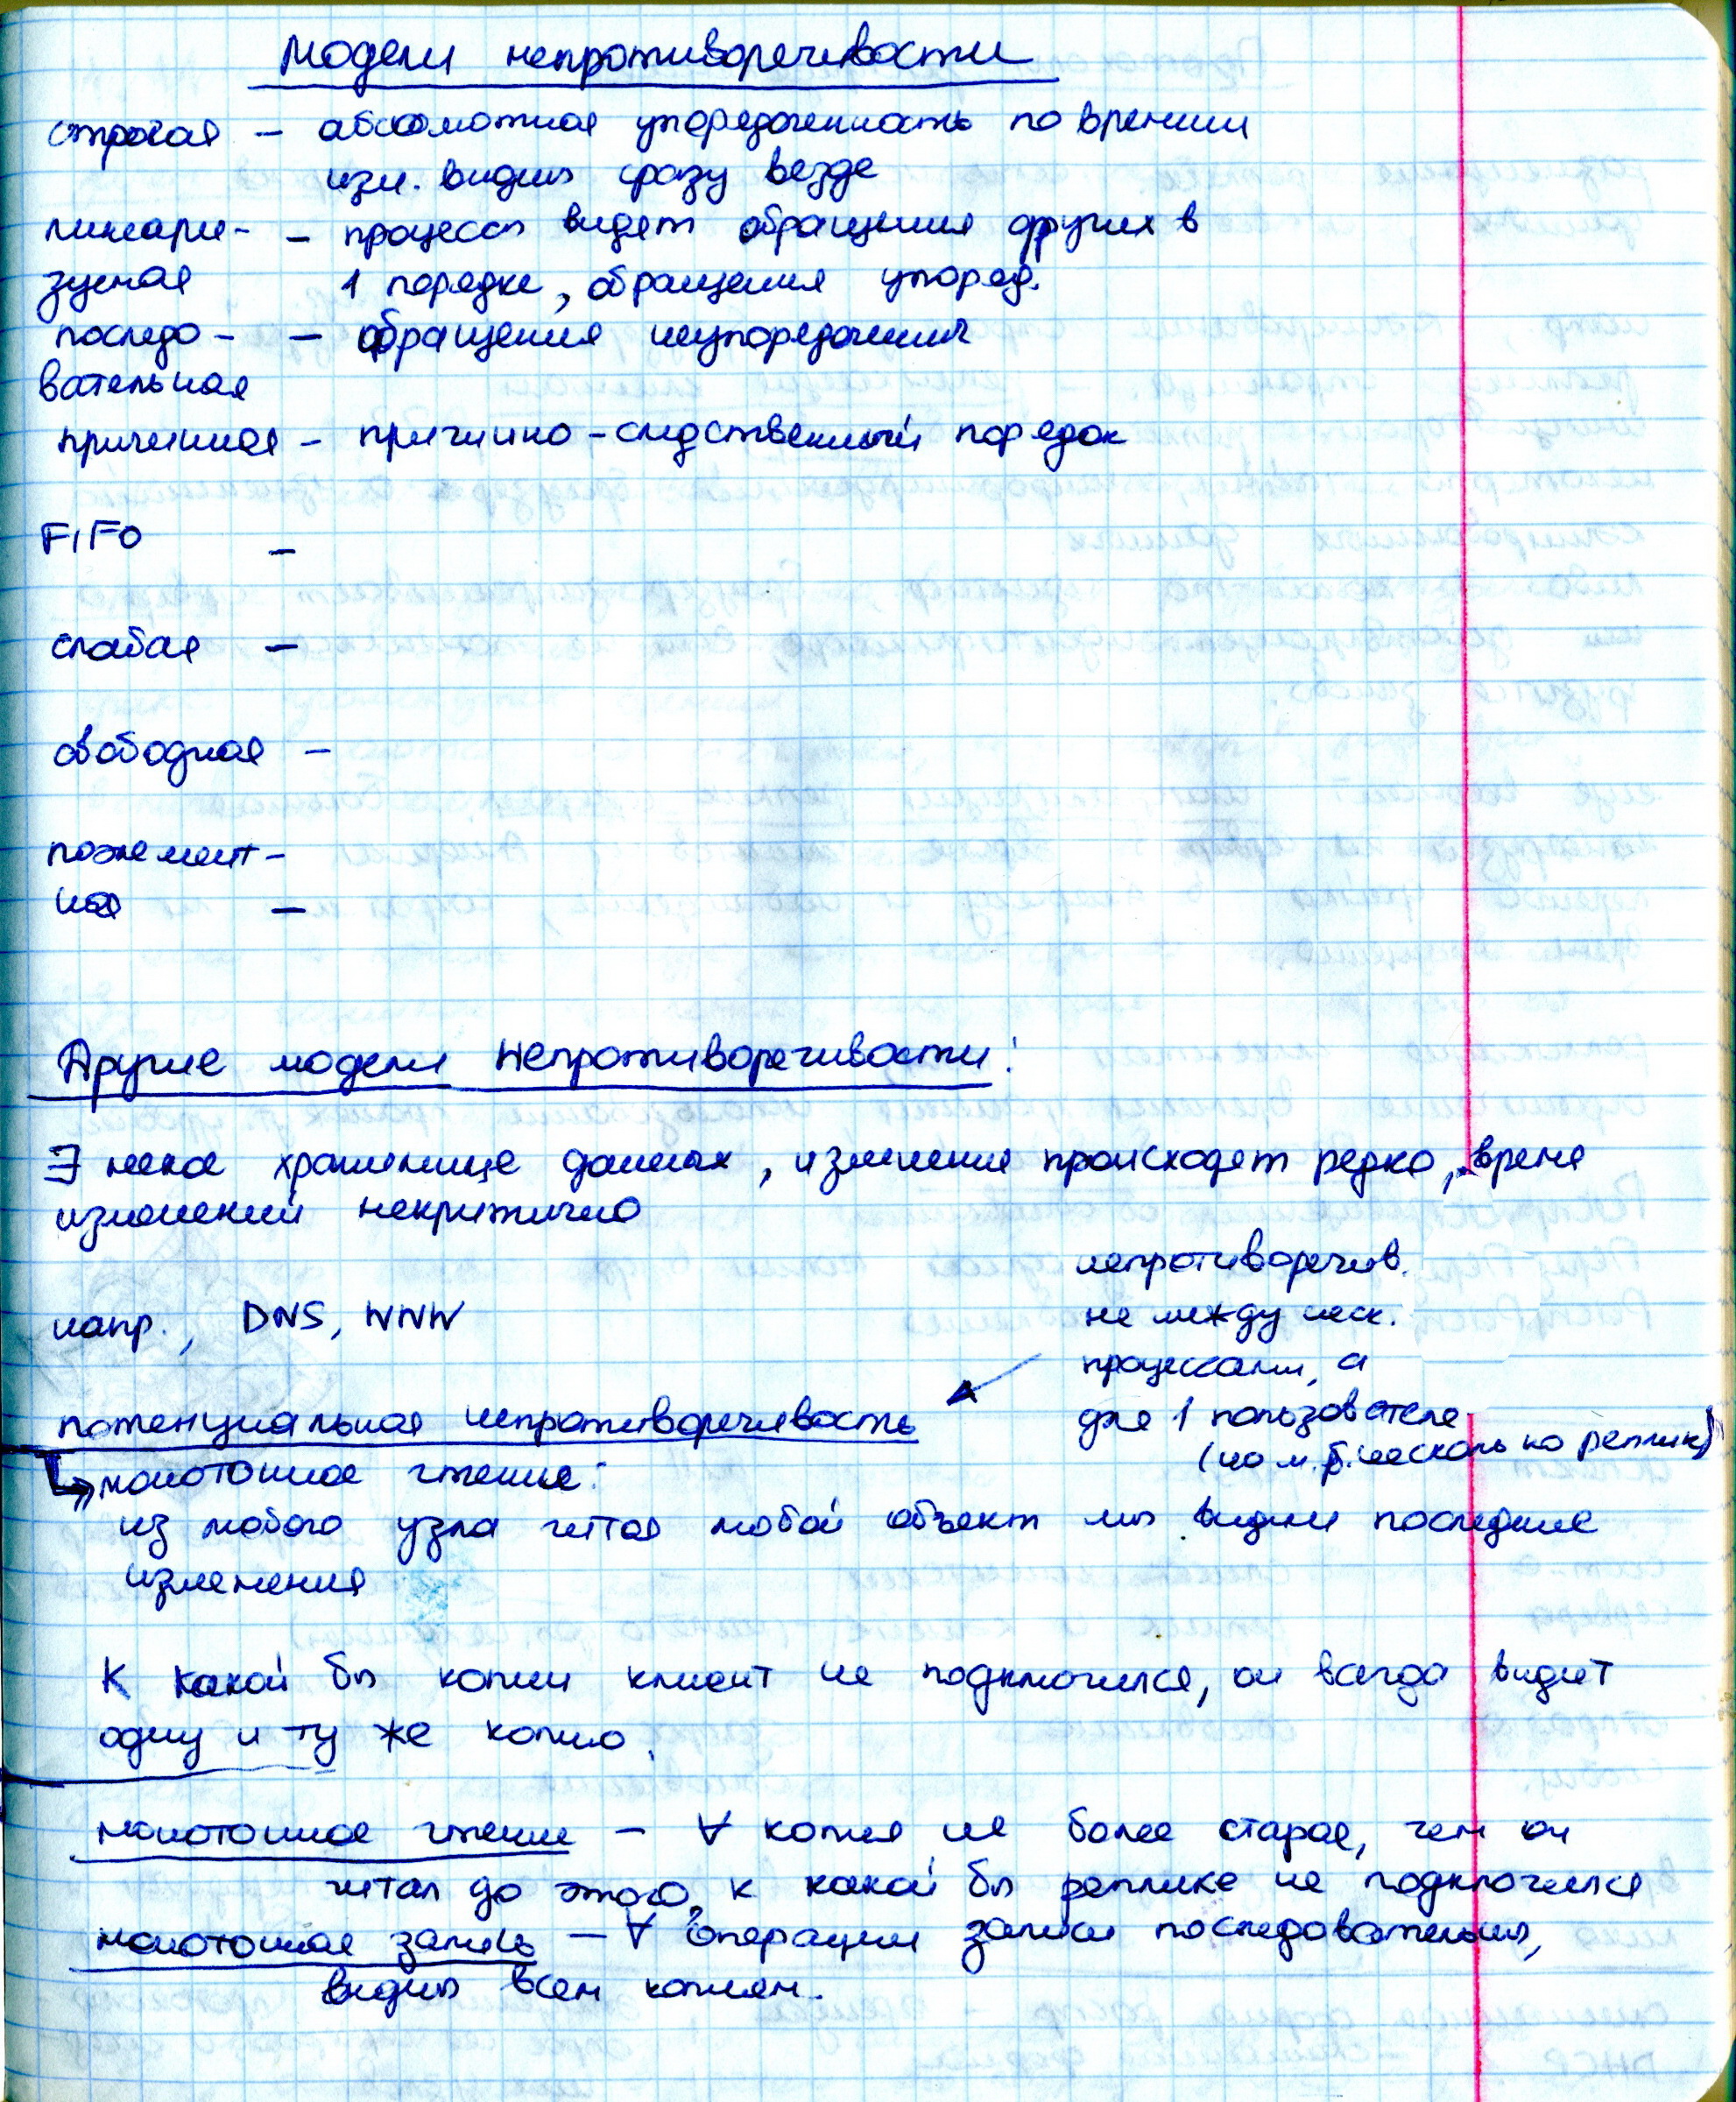 Модели непротиворечивости
строгая – абсолютная упорядоченность по времени
изм. видны сразу везде
линеари- – процессы видят обращения других в
зуемая 1 порядке, обращения упоряд.
последо- – обращения неупорядочены
вательная
причинная – причинно-следственный порядок
FIFO –
слабая –
свободная –
поэлемент-
ная –
Другие модели непротиворечивости:
∃ некое хранилище данных, изменения происходят редко, время
изменений некритично
непротиворечив.
не между неск.
напр., DNS, WWW
процессами, а
для 1 пользователя
(но м.б. несколько реплик)
потенциальная непротиворечивость
↳ монотонное чтение:
из любого узла читая любой объект мы видим последние
изменения
К какой бы копии клиент не подключился, он всегда видит
одну и ту же копию.
монотонное чтение – ∀ копия не более старая, чем он
читал до этого, к какой бы реплике не подключился
монотонная запись – ∀ операции записи последовательны,
видны всем копиям.